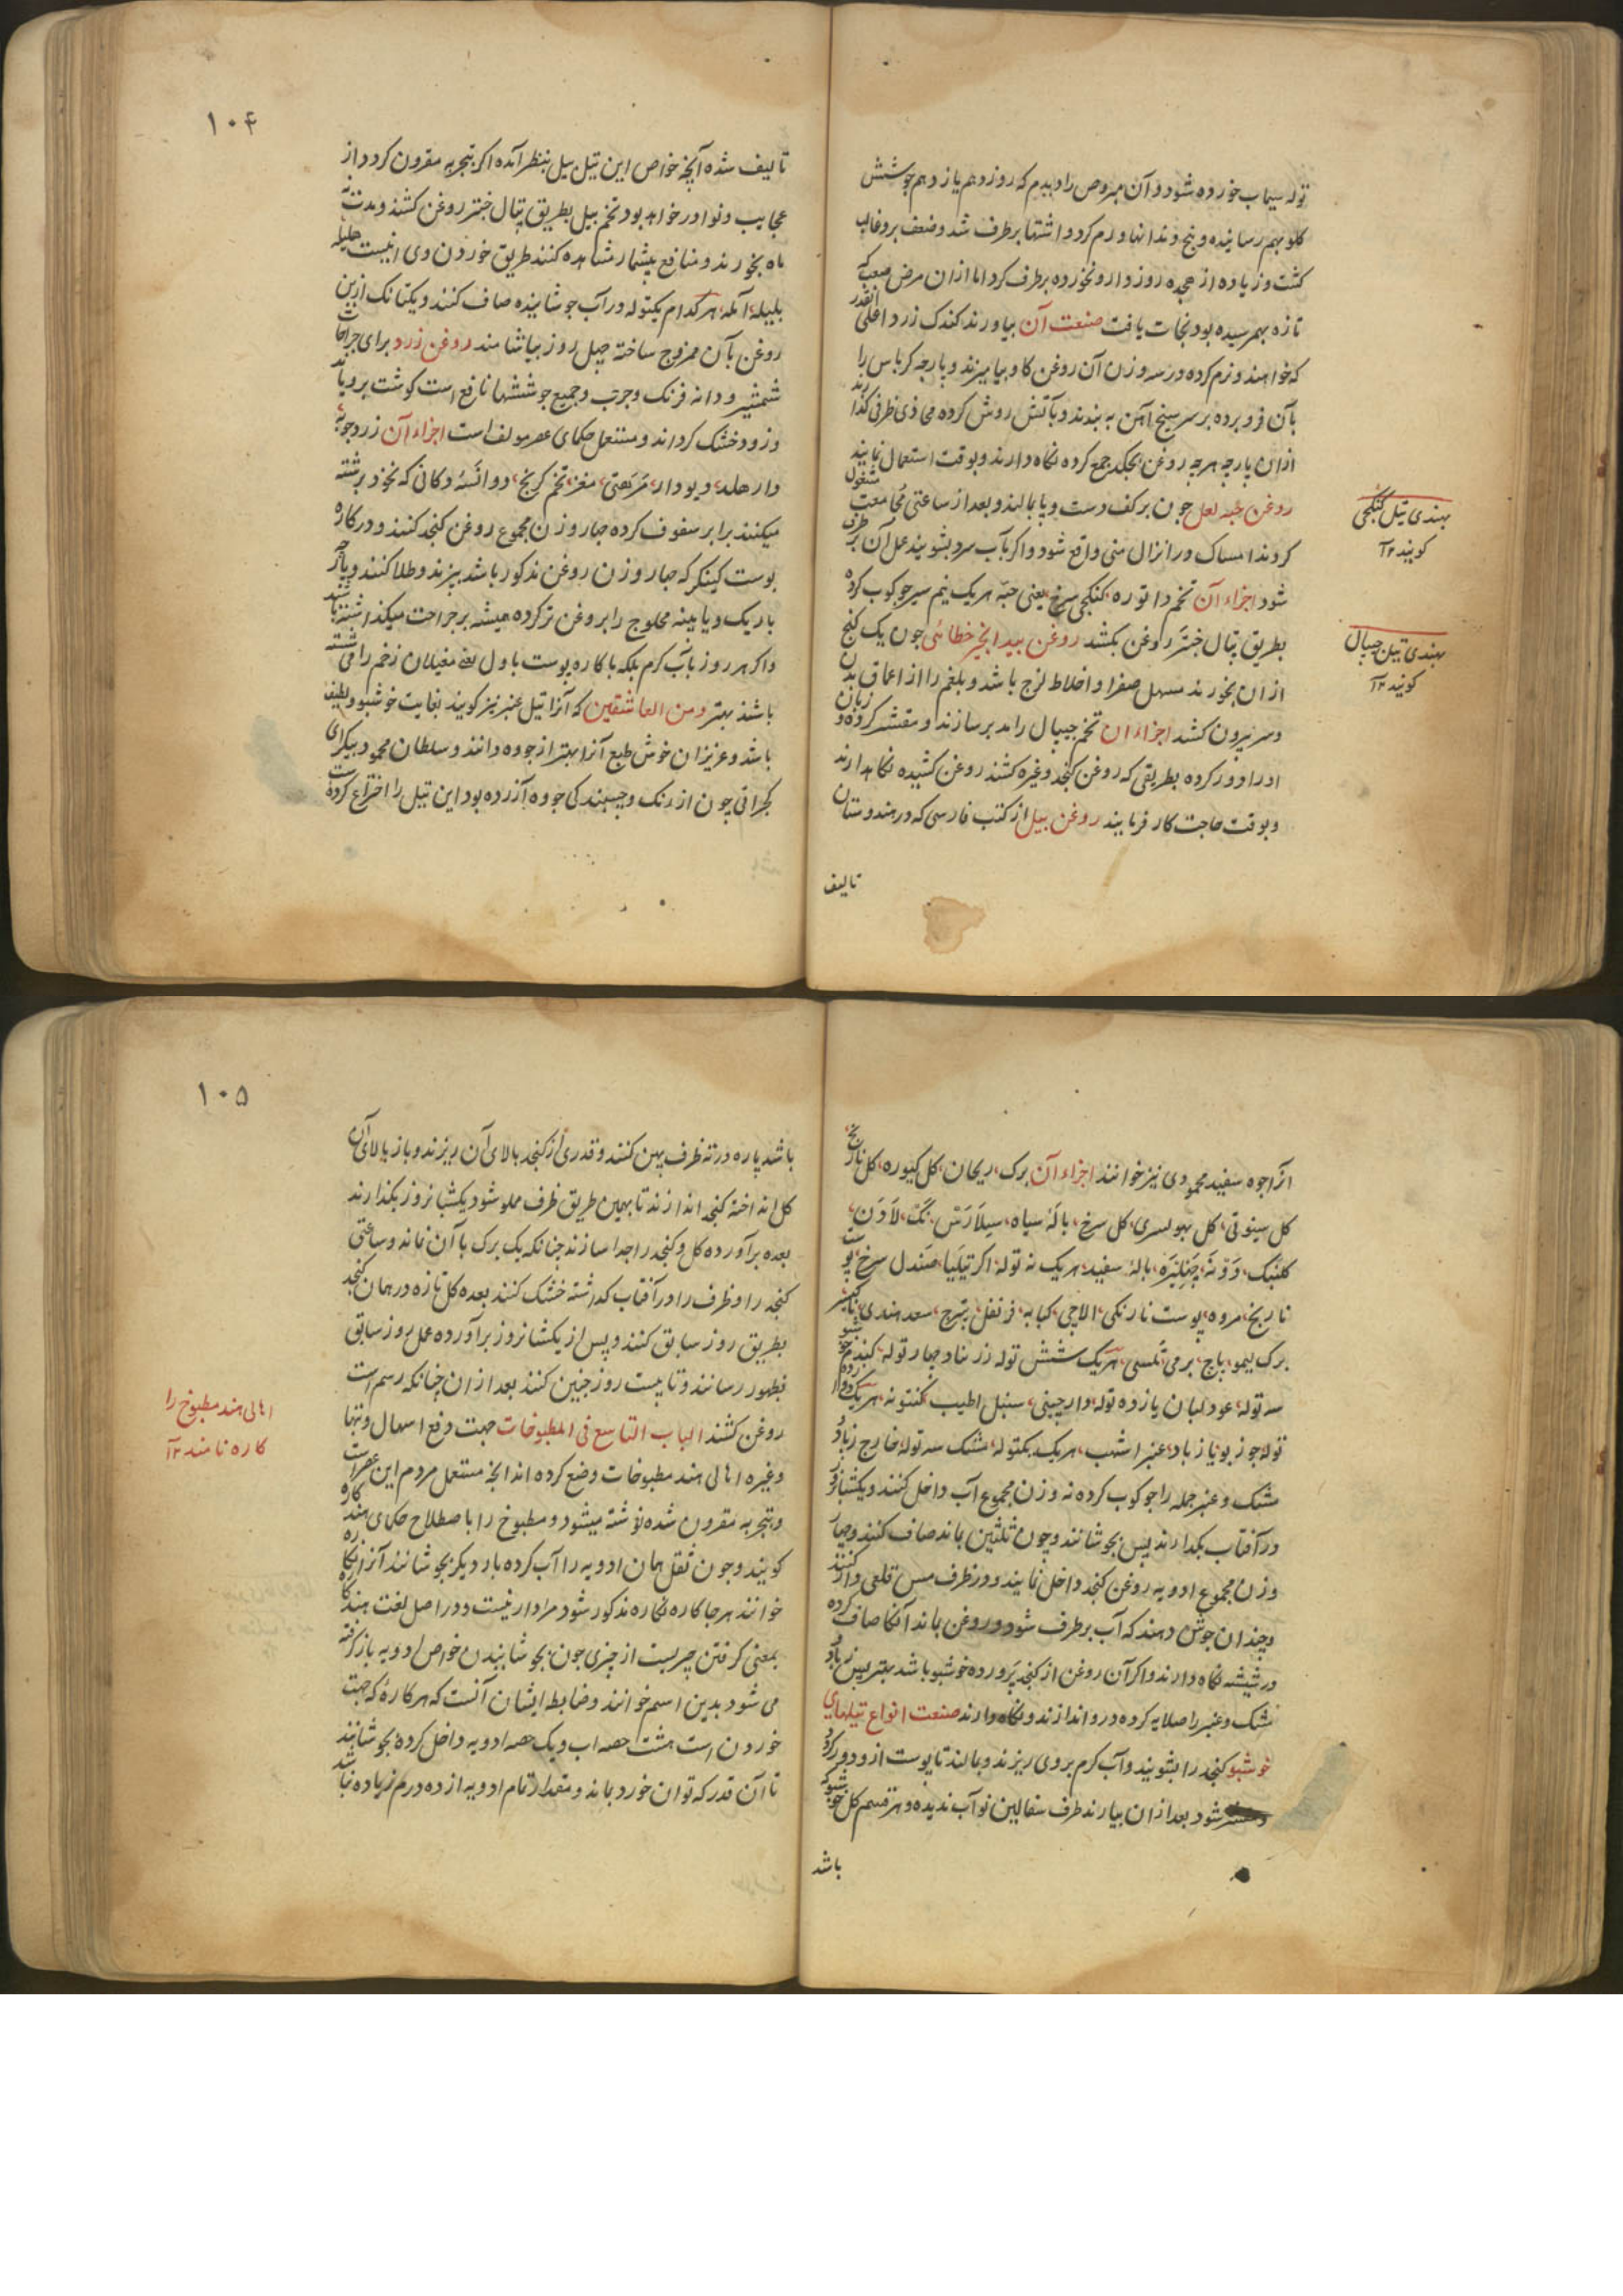 توله سیماب خورده شود و آن مبروص را دیدم که روز دهم یازدهم جوشش
کلو بهم رسانیده و بیخ دندانها ورم کرد و اشتها برطرف شد و ضعف برو غالب
کشت و زیاده از هجده روز دارو نخورده برطرف کرد اما ازان مرض صعب که
تازه بهمرسیده بود نجات یافت صنعت آن بیاورند کندک زرد اعلی انقدر
که خواهند و نرم کرده در سه وزن آن روغن کاو بیامیزند و پارچه کرباس را
بآن فرو برده بر سر سیخ آهن به بندند و بآتش روشن کرده محاذی ظرفی کذارند
ازان پارچه هرچه روغن بچکد جمع کرده نکاه دارند و بوقت استعمال نمایند
روغن حبه لعل چون بر کف دست و پا بمالند و بعد از ساعتی مجامعت مشغول
کردند امساک در انزال منی واقع شود و اکر بآب سرد بشویند عمل آن برطرف
شود اجزاء آن تخم داتوره کنکچی سرخ یعنی حبّه هریک نیم سیر جوکوب کرده
بطریق پتال جنتر روغن بکشند روغن بید انجیر خطائی چون یک کنج
ازان بخورند مسهل صفرا و اخلاط لزج باشد و بلغم را از اعماق بدن
و سر بیرون کشد اجزاء ان تخم جیپال را مدبر سازند و مقشر کرده و زبان
اورا دور کرده بطریقی که روغن کنجد و غیره کشند روغن کشیده نکاهدارند
و بوقت حاجت کار فرمایند روغن بیل از کتب فارسی که در هندوستان
تالیف
بهندی تیل کنکچی
کویند ۱۲
بهندی تیل جیپال
کویند ۱۲
۱۰۴
تالیف شده آنچه خواص این تیل بیل بنظر آمده اکر بتجربه مقرون کردد از
عجایب و نوادر خواهد بود تخم بیل بطریق پتال جنتر روغن کشند و مدت
ماه بخورند و منافع بیشمار مشاهده کنند طریق خوردن وی اینست هلیله
بلیله آمله هرکدام یکتوله در آب جوشانیده صاف کنند و یکتانک ازین
روغن بآن ممزوج ساخته چهل روز بیاشامند روغن زرد برای جراحات
شمشیر و دانه فرنک و جرب و جمیع جوششها نافع است کوشت برویاند
و زود خشک کرداند و مستعمل حکمای عصر مولف است اجزاء آن زردچوبه
دار هلد دیودار مغز تخم کرنج دکانی که نخود برشته
میکنند برابر سفوف کرده چهار وزن مجموع روغن کنجد کنند و در کاره
پوست کینکر که چهار وزن روغن مذکور باشد بپزند و طلا کنند و پارچه
باریک و یا پنبه محلوج را بروغن تر کرده همیشه بر جراحت میکذاشته باشند
و اکر هر روز بآب کرم بلکه با کاره پوست باول یعنی مغیلان زخم را می شسته
باشند بهتر و من العاشقین که آنرا تیل عنبر نیز کویند بغایت خوشبو و لطیف
باشد و عزیزان خوش طبع آنرا بهتر از چووه دانند و سلطان محمود بیکرای
کجراتی چون از رنک و چسپندکی چووه آزرده بود این تیل را اختراع کرده است
انرا چوه سفید محمودی نیز خوانند اجزاء آن برک ریحان کل کیوره کل نارنج
کل سیوتی کل بهولسری کل سرخ بالهٔ سیاه سیلارس نک لادن
کلنبک بالهٔ سفید هریک نه توله اکر تیلیا صندل سرخ پوست
نارنج مروه پوست نارنکی الاچی کبابه قرنفل سعد هندی
برک لیمو پاچ برمی تلسی هریک شش توله زرنباد چهار توله
سه توله عود لبان یازده توله دارچینی سنبل الطیب هریک دوازده
توله جوزبویا زباد عنبر اشهب هریک یکتوله مشک سه توله خارج زباد و
مشک و عنبر جمله را جوکوب کرده نه وزن مجموع آب داخل کنند و یکشبانروز
در آفتاب بکذارند پس بجوشانند و چون ثلثین بماند صاف کنند و چهار
وزن مجموع ادویه روغن کنجد داخل نمایند و در ظرف مس قلعی دار کنند
و چندان جوش دهند که آب برطرف شود و روغن بماند آنکاه صاف کرده
در شیشه نکاه دارند و اکر آن روغن از کنجد پرورده خوشبو باشد بهتر پس زباد و
مشک و عنبر را صلایه کرده در و اندازند و نکاه دارند صنعت انواع تیلهای
خوشبو کنجد را بشویند و آب کرم بر وی ریزند و بمالند تا پوست ازو دور کردد
شود بعد ازان بیارند ظرف سفالین نو آب ندیده و هر قسم کل خوشبو که
باشد
۱۰۵
باشد پاره در ته ظرف پهن کنند و قدری از کنجد بالای آن ریزند و باز بالای آن
کل انداخته کنجد اندازند تا بهمین طریق ظرف مملو شود یکشبانروز بکذارند
بعده برآورده کل و کنجد را جدا سازند چنانکه یک برک با آن نماند و ساعتی
کنجد را و ظرف را در آفتاب کداشته خشک کنند بعده کل تازه در همان کنجد
بطریق روز سابق کنند و پس از یکشبانروز برآورده عمل روز سابق
بظهور رسانند و تا بیست روز چنین کنند بعد ازان چنانکه رسم است
روغن کشند الباب التاسع فی المطبوخات جهت دفع اسهال و تبها
و غیره اهالی هند مطبوخات وضع کرده اند انچه مستعمل مردم این عصر است
و بتجربه مقرون شده نوشته میشود و مطبوخ را باصطلاح حکمای هند کاره
کویند و چون ثفل همان ادویه را آب کرده بار دیکر بجوشانند آنرا نکاره
خوانند هرجا کاره نکاره مذکور شود مراد ازینست و در اصل لغت هند کاره
بمعنی کرفتن چیزیست از چیزی چون بجوشانیدن خواص ادویه باز کرفته
می شود بدین اسم خوانند و ضابطه ایشان آنست که هر کارهٔ که جهت
خوردن است هشت حصه اب و یک حصه ادویه داخل کرده بجوشانند
تا آن قدر که توان خورد بماند و مقدار تمام ادویه از ده درم زیاده نباشد
اهالی هند مطبوخ را
کاره نامند ۱۲